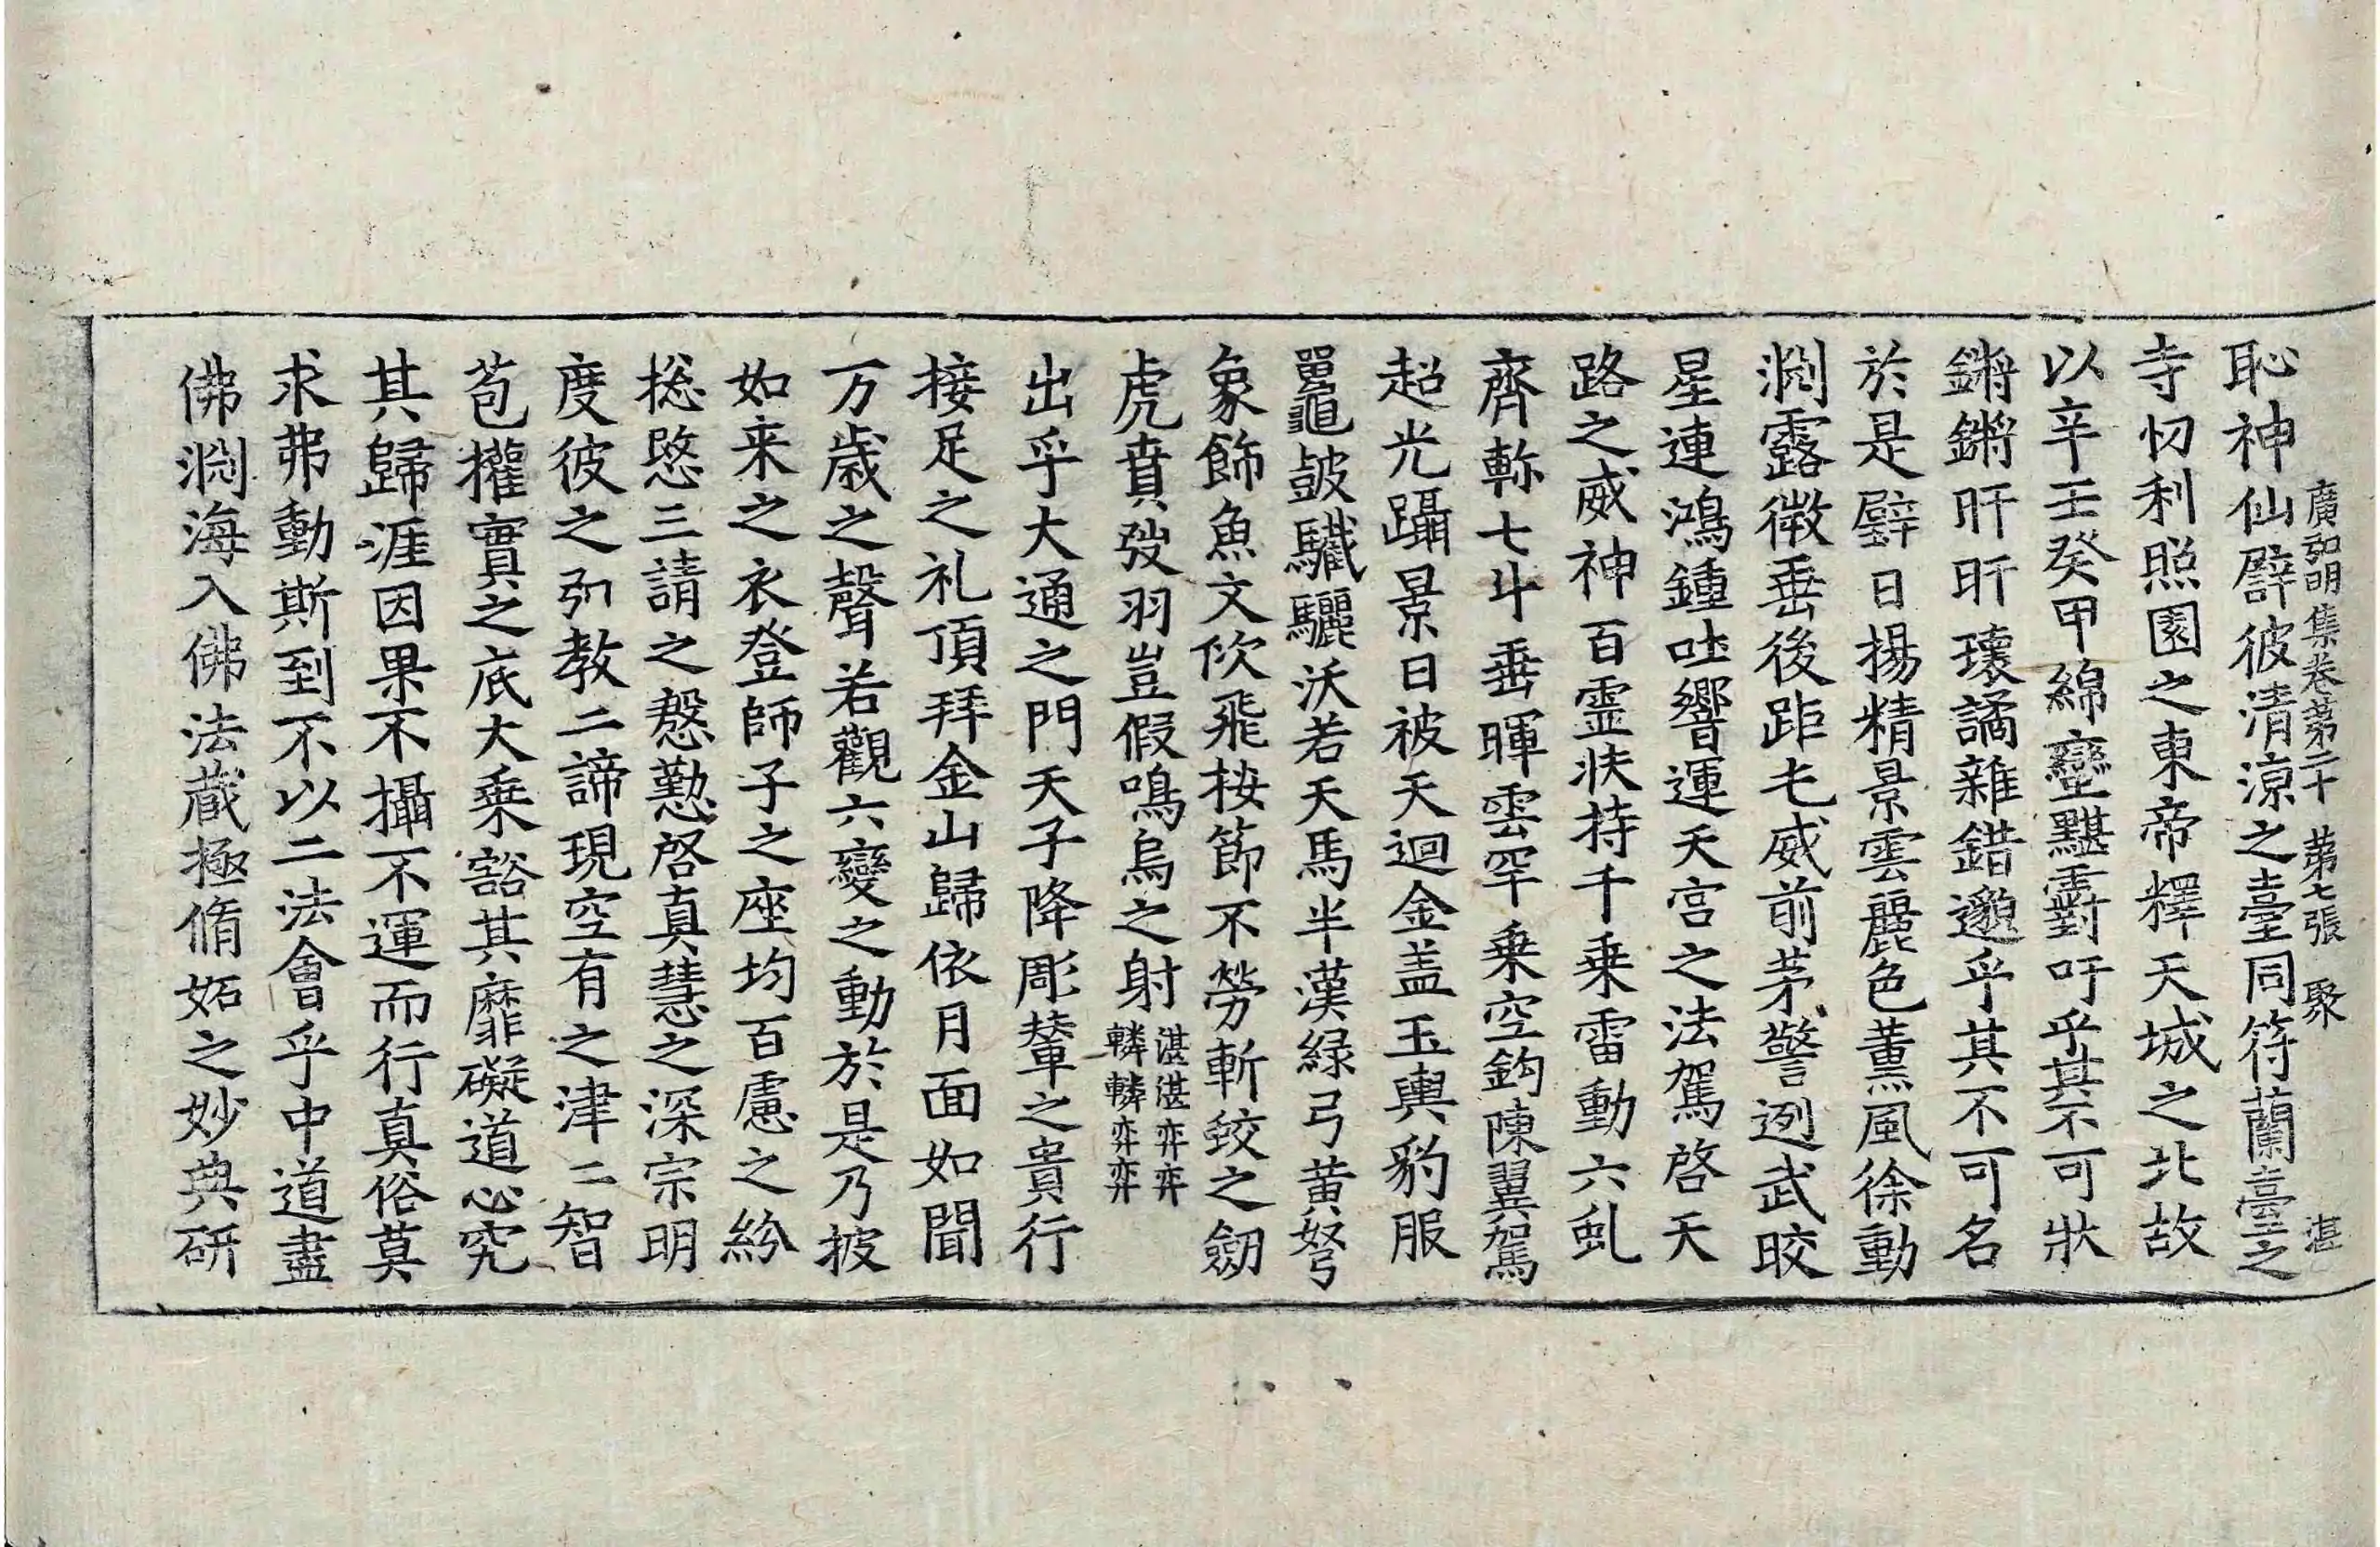 恥神仙譬彼清涼之臺同符蘭臺之
廣弘明集卷第二十 第七張 聚 湛
寺忉利照園之東帝釋天城之北故
以辛壬癸甲綿巒黮䨴吁乎其不可狀
鏘鏘旰旰瓌譎雜錯邈乎其不可名
於是璧日揚精景雲麗色薰風徐動
淵露微垂後距屯威前茅警迾武皎
星連鴻鍾吐響運天宮之法駕啓天
路之威神百靈扶持千乗雷動六虬
齊軫七斗垂暉雲罕乗空鈎陳翼駕
超光躡景日被天迴金盖玉輿豹服
鼉皷驖驪沃若天馬半漢緑弓黄弩
象飾魚文佽飛桉節不勞斬蛟之劒
虎賁弢羽豈假鳴烏之射湛湛弈弈轔轔弈弈
出乎大通之門天子降彫輦之貴行
接足之礼頂拜金山歸依月面如聞
万歳之聲若觀六變之動於是乃披
如来之衣登師子之座均百慮之紛
揔愍三請之慇懃啓真慧之深宗明
度彼之弘教二諦現空有之津二智
苞權實之底大乗豁其靡礙道心究
其歸涯因果不攝不運而行真俗莫
求弗動斯到不以二法會乎中道盡
佛淵海入佛法蔵極脩妬之妙典研